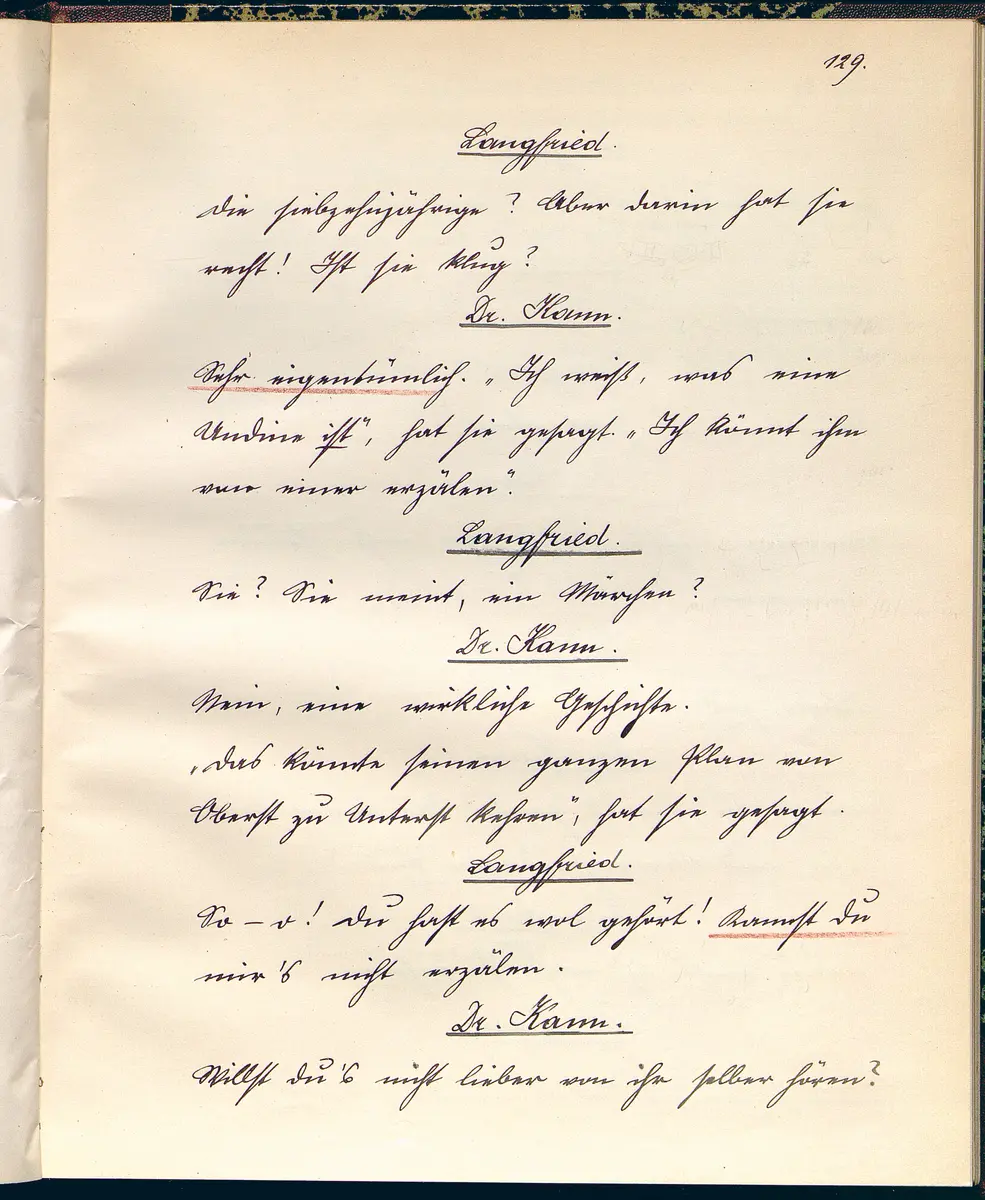 129.
Langfried.
Die siebzehnjährige? Aber darin hat sie
recht! Ist sie klug?
Dr. Kann.
Sehr eigentümlich. „Ich weiß, was eine
Undine ist", hat sie gesagt. „Ich könnt ihm
von einer erzälen".
Langfried.
Sie? Sie meint, ein Märchen?
Dr. Kann.
Nein, eine wirkliche Geschichte.
„Das könnte seinen ganzen Plan von
Oberst zu Unterst kehren", hat sie gesagt.
Langfried.
So – o! Du hast es wol gehört! Kannst Du
mir's nicht erzälen.
Dr. Kann.
Willst du's nicht lieber von ihr selber hören?